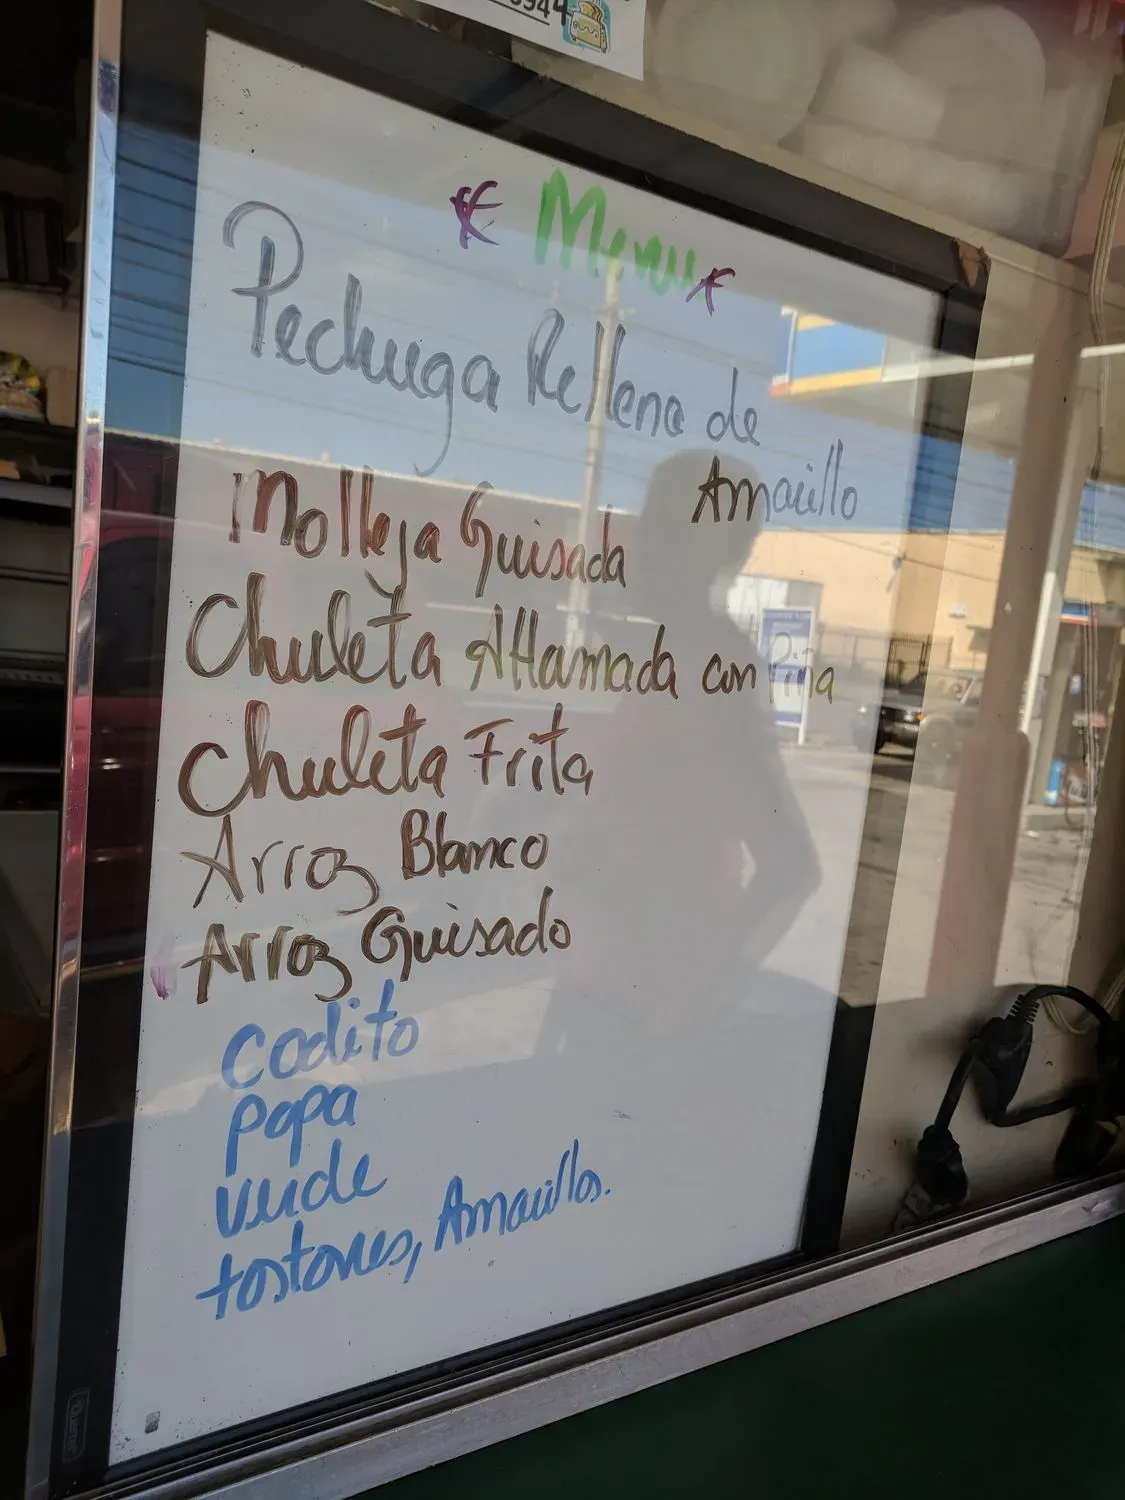 944
Menu
Pechuga Rellena de
Amarillo
Molleja Guisada
Chuleta Ahamada con Piña
Chuleta Frita
Arroz Blanco
Arroz Guisado
codito
papa
verde
tostones, Amarillos.
Quartet